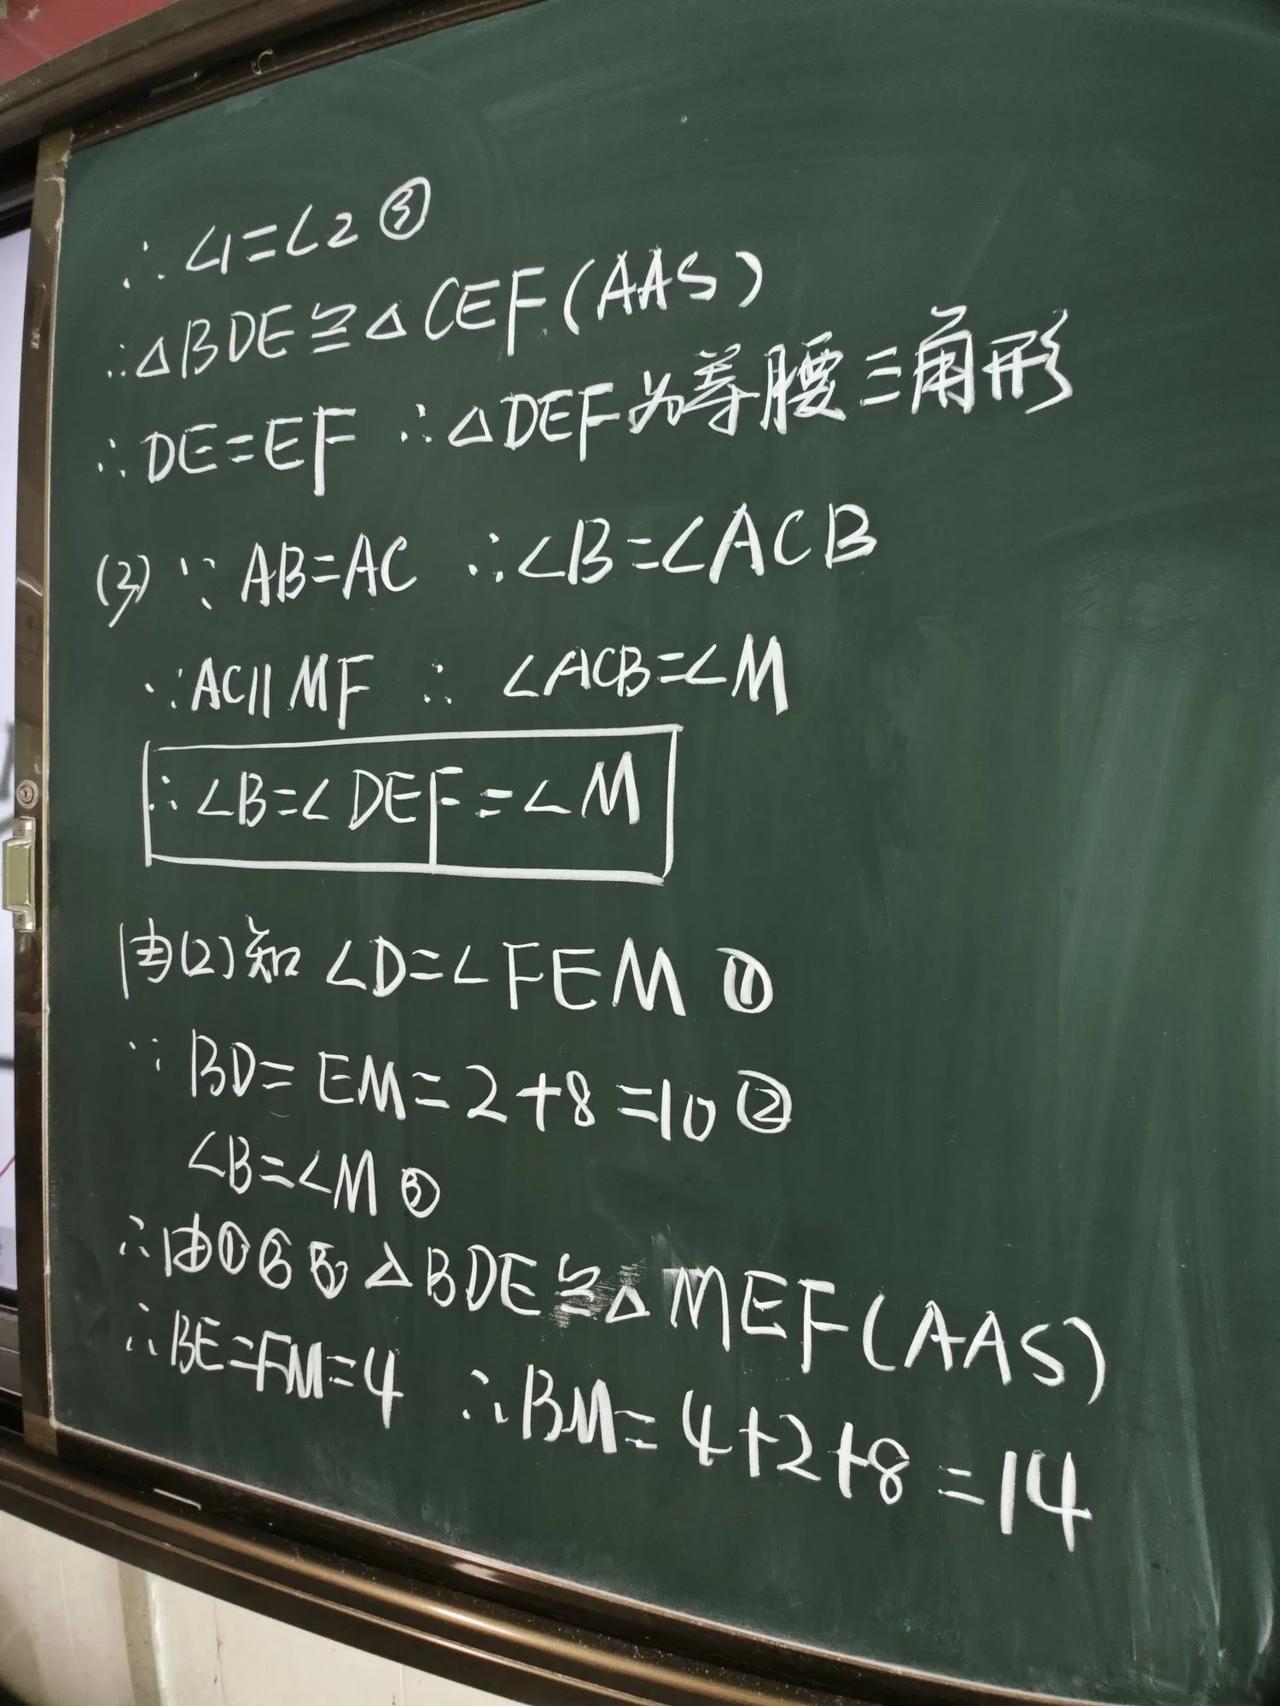 ∴∠1=∠2③
∴△BDE≌△CEF(AAS)
∴DE=EF ∴△DEF为等腰三角形
(3) ∵AB=AC ∴∠B=∠ACB
∵AC∥MF ∴∠ACB=∠M
∴∠B=∠DEF=∠M
由(2)知∠D=∠FEM①
∵BD=EM=2+8=10②
∠B=∠M③
∴由①②③△BDE≌△MEF(AAS)
∴BE=FM=4 ∴BM=4+2+8=14